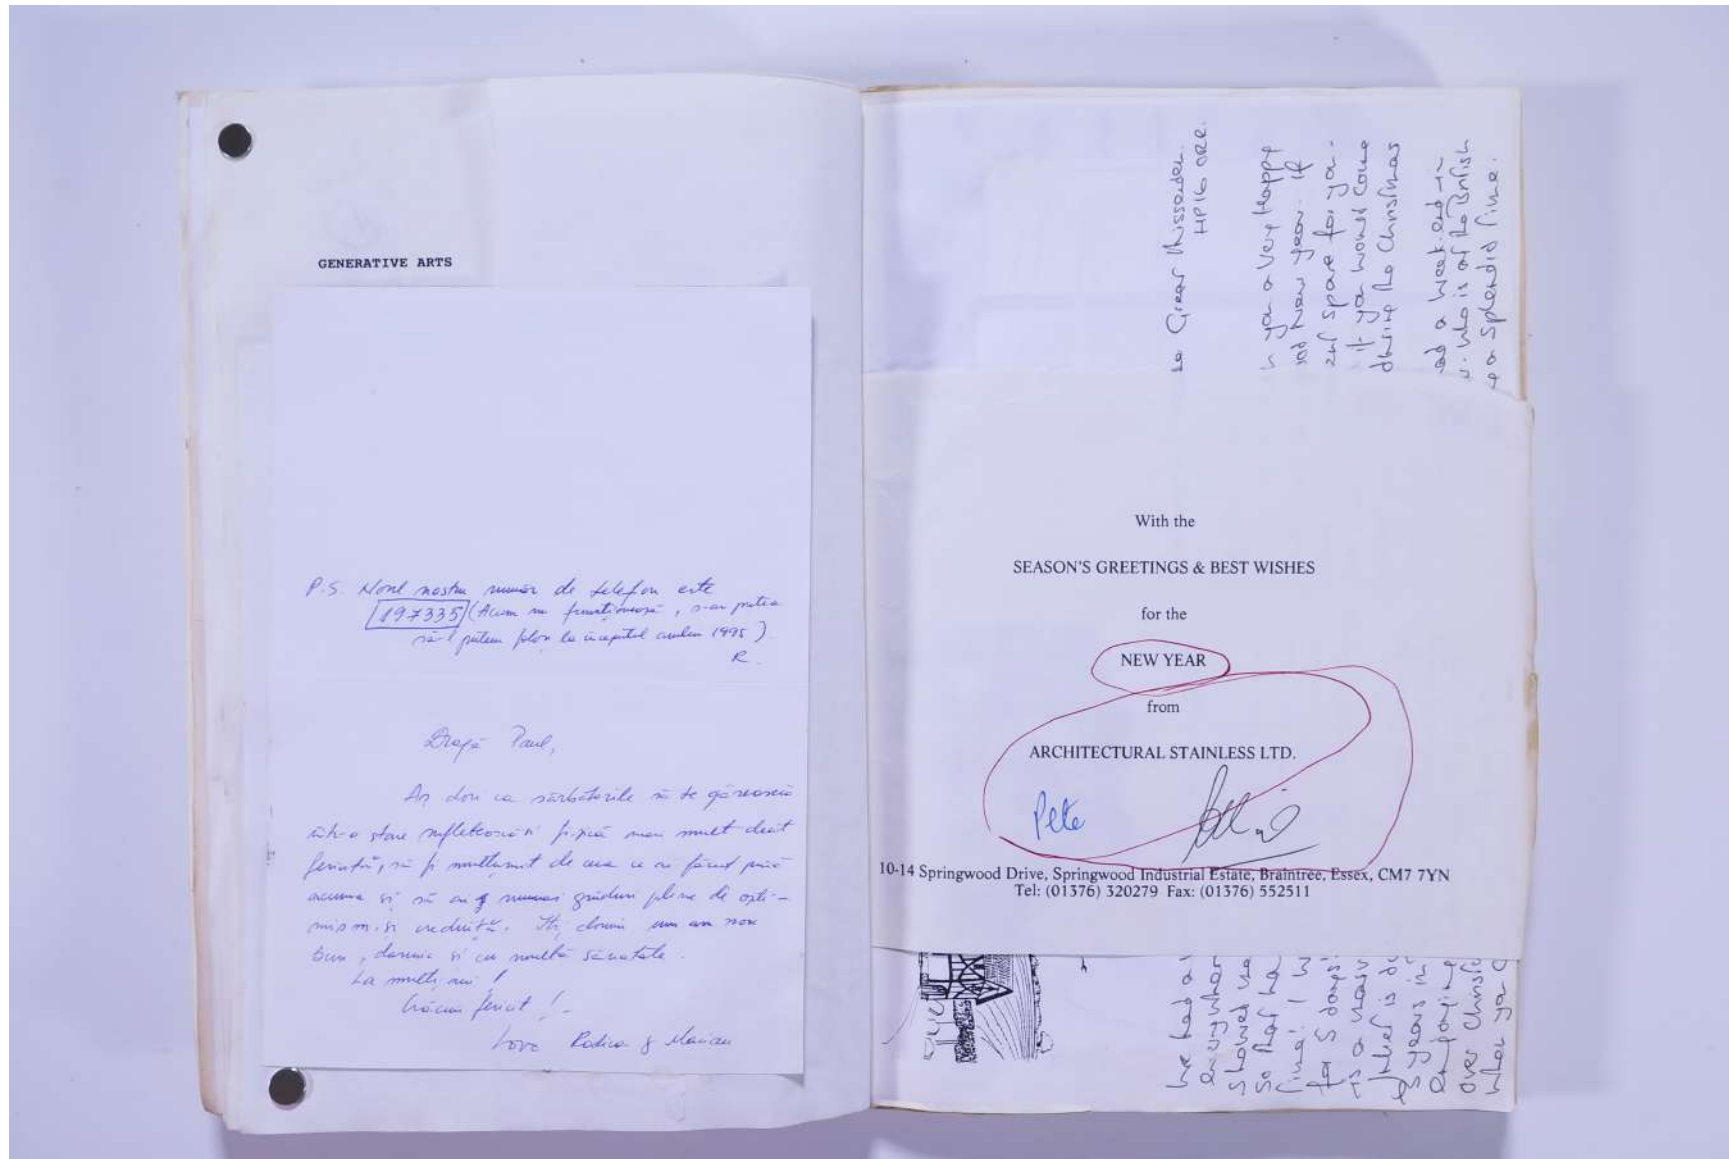 GENERATIVE ARTS
P.S. Noul nostru număr de telefon este
197335 (Acum nu funcționează, s-ar putea
să-l putem folosi la începutul anului 1995).
R.
Dragă Paul,
Aș dori ca sărbătorile să te găsească
într-o stare sufletească și fizică mai mult decât
fericită, să fi mulțumit de ceea ce ai făcut până
acuma și să ai numai gânduri pline de opti-
mism și credință. Îți dorim un an nou
bun, darnic și cu multă sănătate.
La mulți ani!
Crăciun fericit! -
Love Rodica & Marian
Great Missenden.
HP16 0RE.
you a Very Happy
New Year. If
spare for you-
if you would come
during the Christmas
a week-end in
who is at the British
a splendid time.
With the
SEASON'S GREETINGS & BEST WISHES
for the
NEW YEAR
from
ARCHITECTURAL STAINLESS LTD.
Pete
10-14 Springwood Drive, Springwood Industrial Estate, Braintree, Essex, CM7 7YN
Tel: (01376) 320279 Fax: (01376) 552511
We had a
everywhere
showed
So that
time! I
for 5 days
as a
is
5 years in
enjoying
over
when you